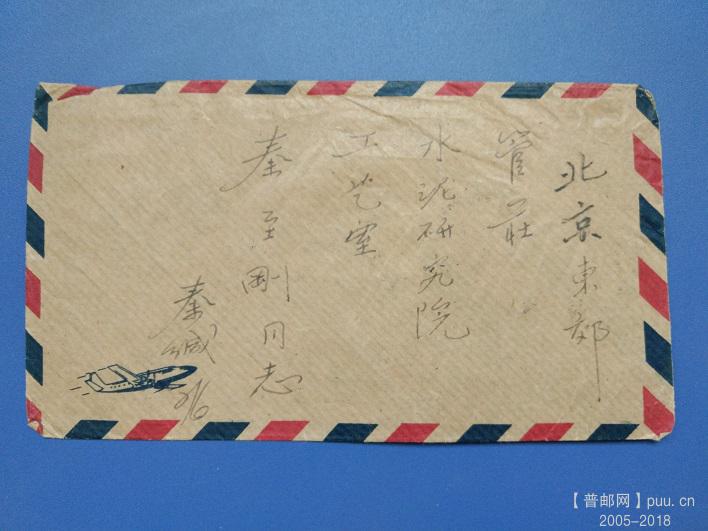 北京東郊
管莊
水泥研究院
工艺室
秦至剛同志
秦缄
【普邮网】puu.cn
2005-2018